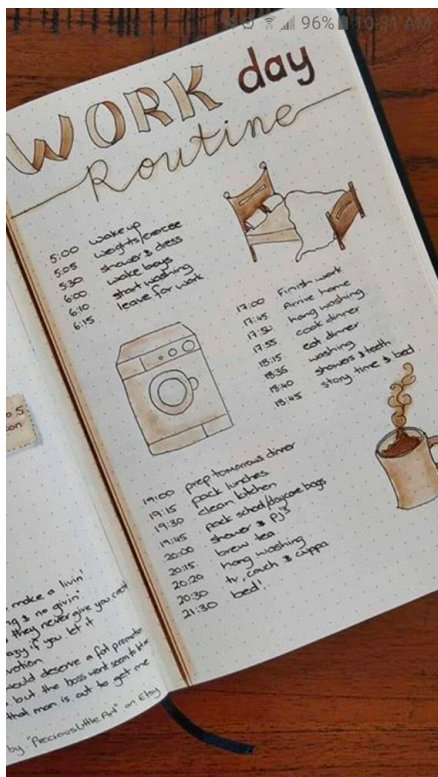 96% 10:31 AM
WORK day
Routine
5:00 wake up
5:05 weights/exercise
5:30 shower & dress
6:00 wake boys
6:10 start washing
6:15 leave for work
17:00 Finish work
17:45 Arrive home
17:50 hang washing
17:55 cook dinner
18:15 eat dinner
18:35 washing
18:40 showers & teeth
18:45 story time & bed
19:00 prep tomorrows dinner
19:15 pack lunches
19:30 clean kitchen
19:45 pack school/daycare bags
20:00 shower & PJ's
20:15 brew tea
20:20 hang washing
20:30 tv, couch & cuppa
21:30 bed!
o 5
on
make a livin'
& no givin'
they never give you credit
if you let it
would deserve a fat promotion
but the boss won't seem to let me
that man is out to get me
by "PreciousLittleArt" on Etsy